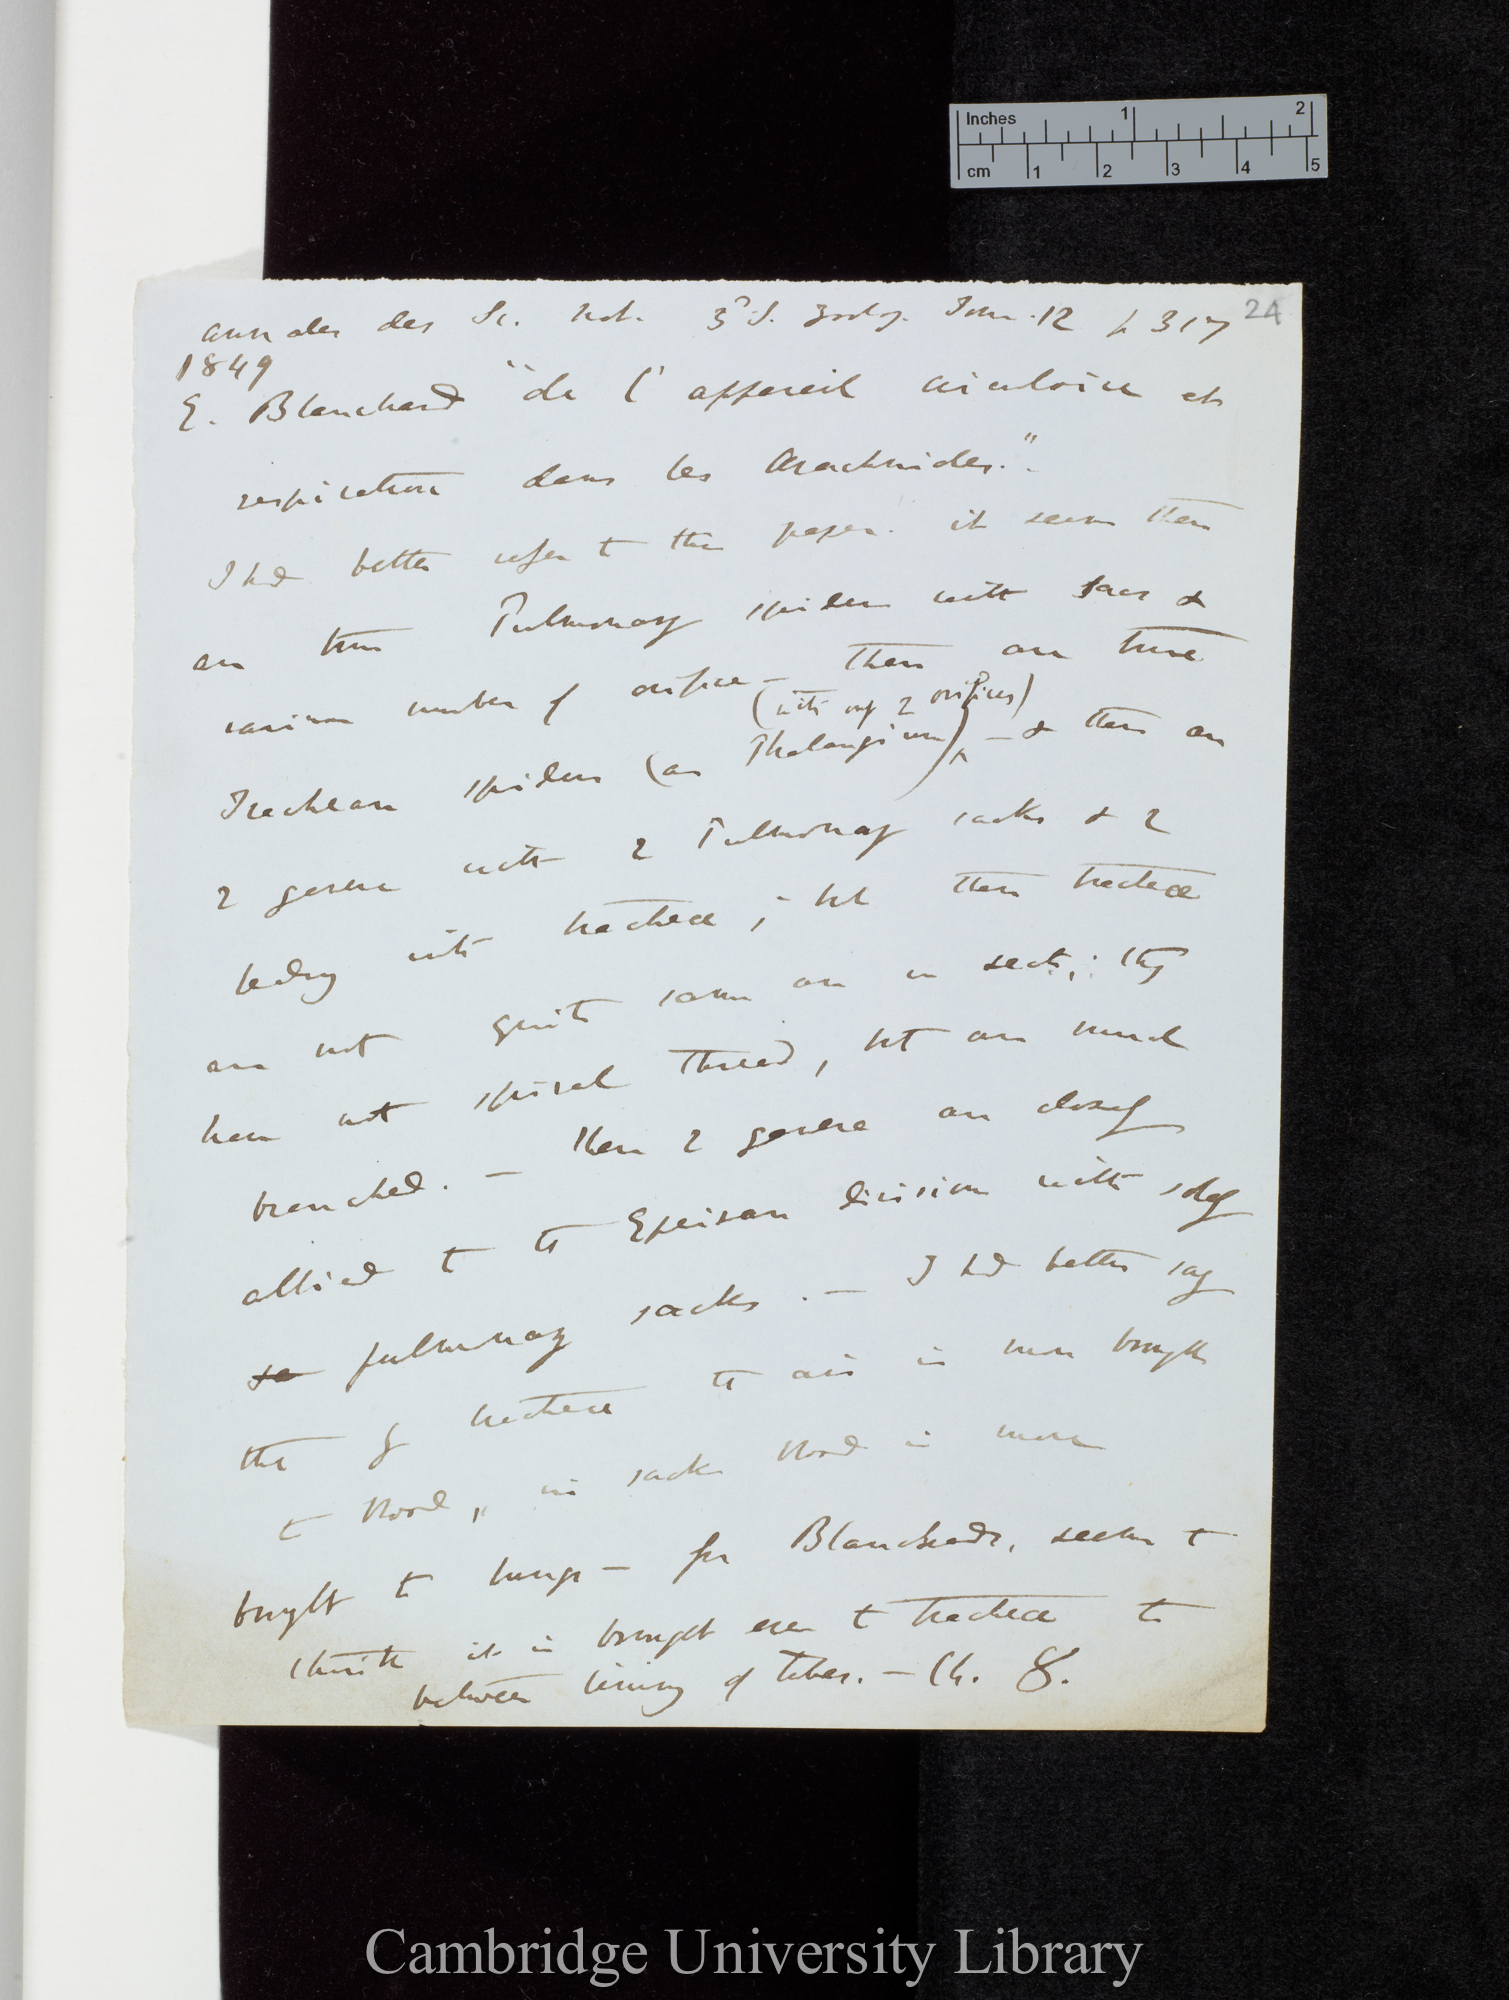 Inches 1 2
cm 1 2 3 4 5
24
Annales des Sc. Nat. 3d. S. Zoolog. Tom. 12 p 317
1849
E. Blanchard "de l'appareil circulatoire et
respiration dans les Arachnides."
I had better refer to the paper. it seems there
are true Pulmonary spiders with sacs &
various number of orifice — there are true
(with only 2 orifices)
Trachean spiders (as Phalangium) — & there are
2 genera with 2 Pulmonary sacks & 2
leading into tracheæ; but these tracheæ
are not quite same as in sects; they
have not spiral thread, but are much
branched. — These 2 genera are closely
allied to the Epeiran division with solely
pulmonary sacks. — I had better say
that if tracheæ the air is more brought
to blood, in sacks blood is more
brought to lungs — for Blanchard, seems to
think it is brought even to tracheæ to
between lining of tubes. — Ch. 8.
Cambridge University Library